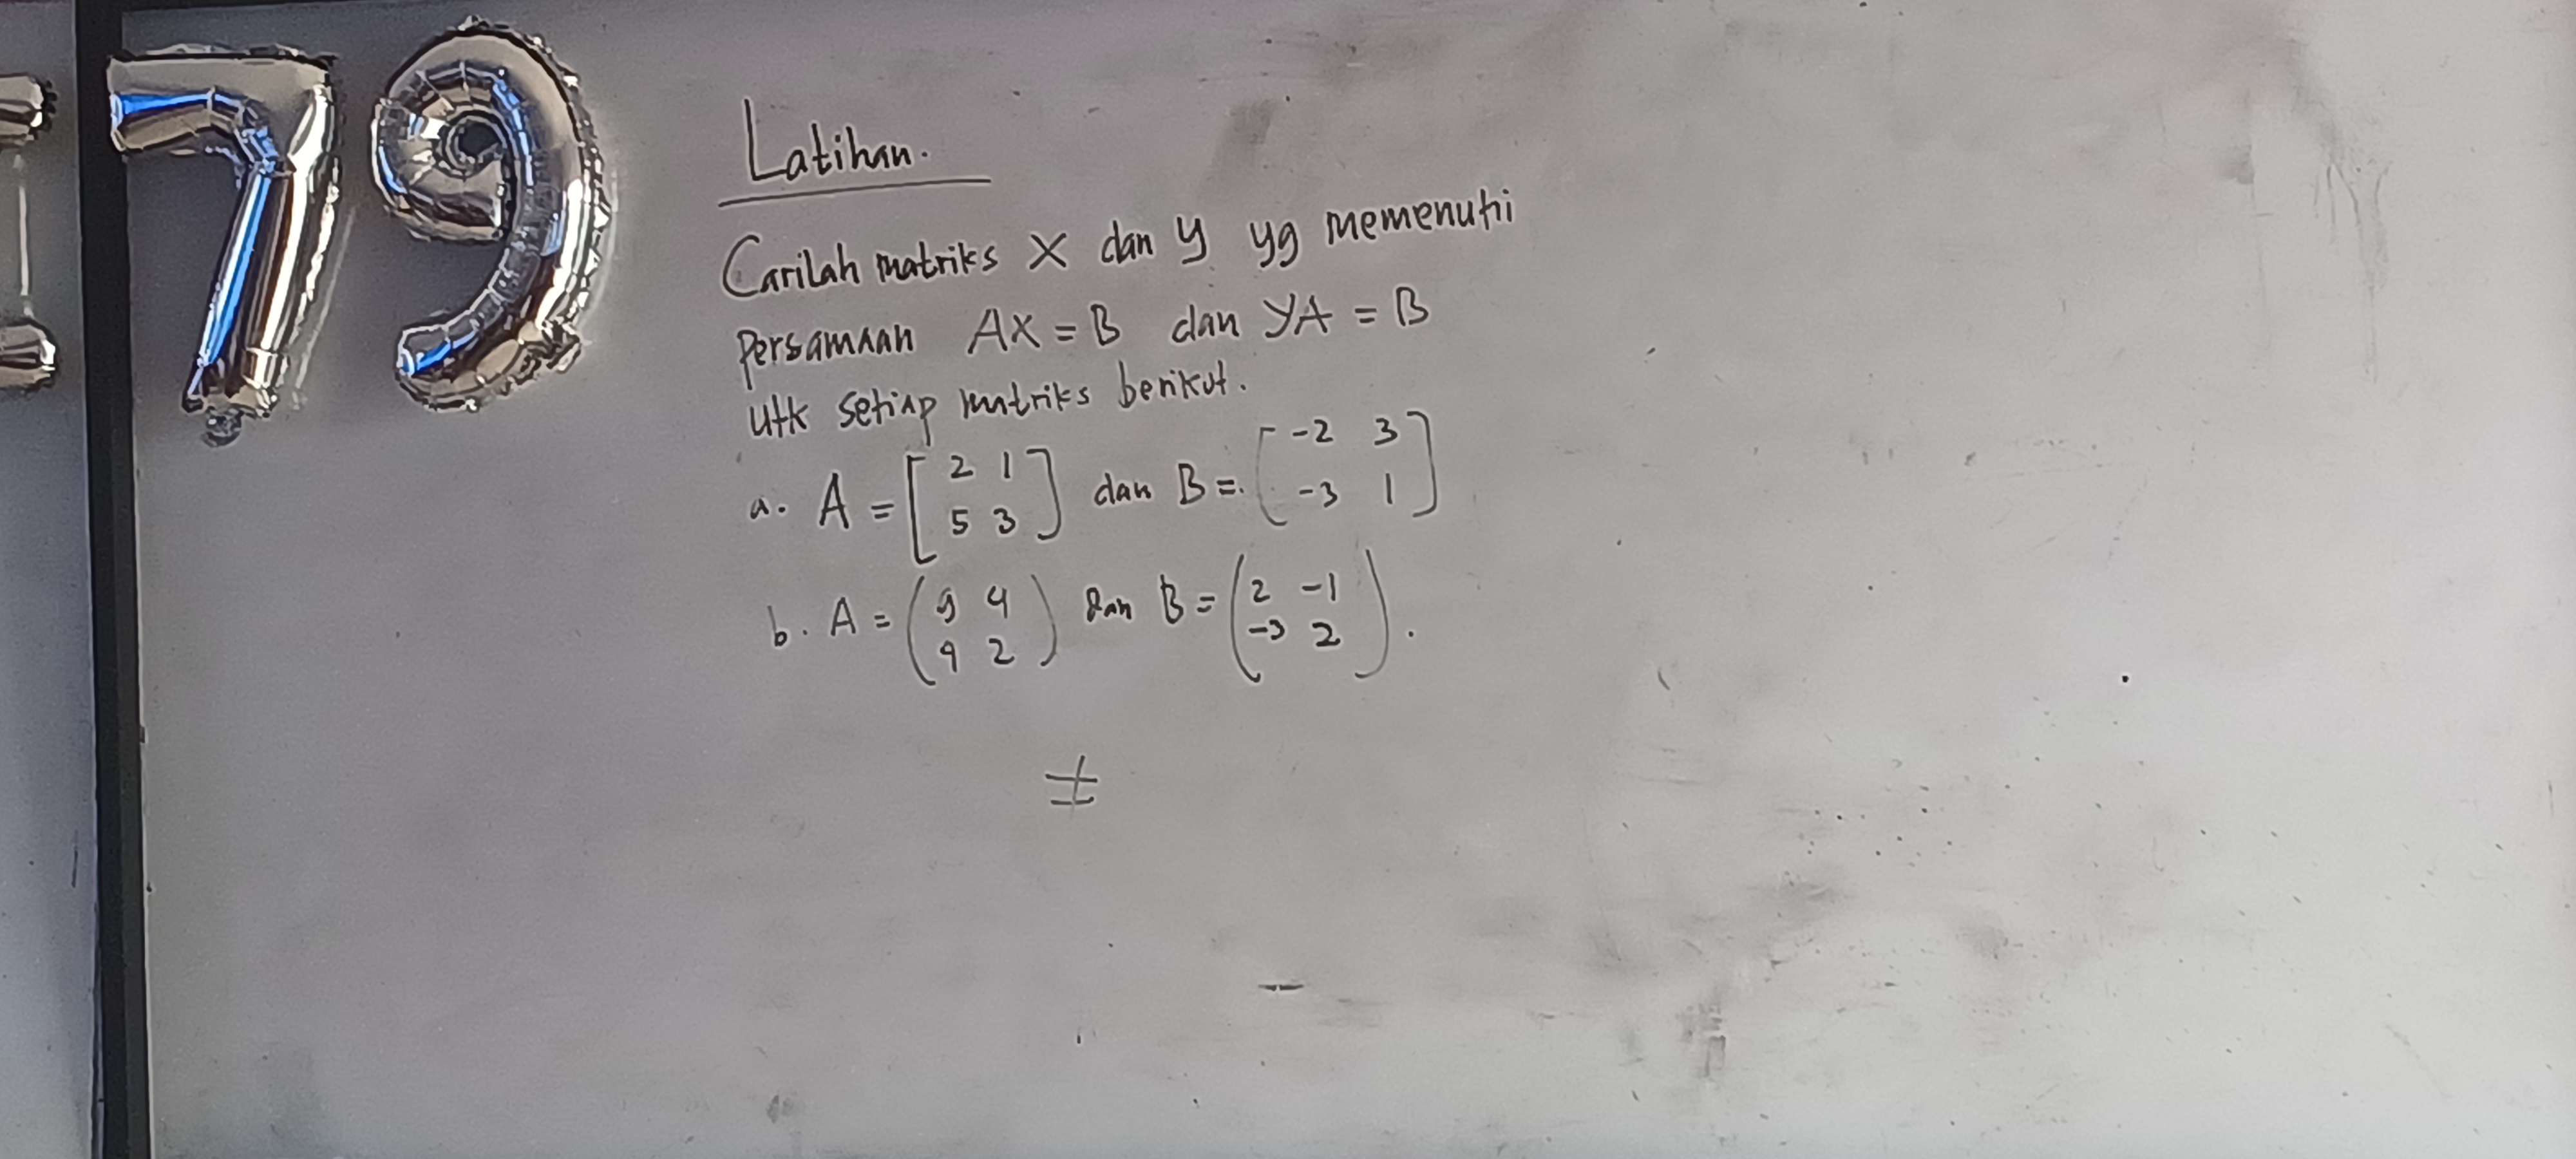 79
Latihan.
Carilah matriks X dan Y yg memenuhi
Persamaan AX = B dan YA = B
utk setiap matriks berikut.
a. A = [2 1] dan B = [-2 3]
[5 3] [-3 1]
b. A = (9 4) dan B = (2 -1)
(4 2) (-3 2).
≠